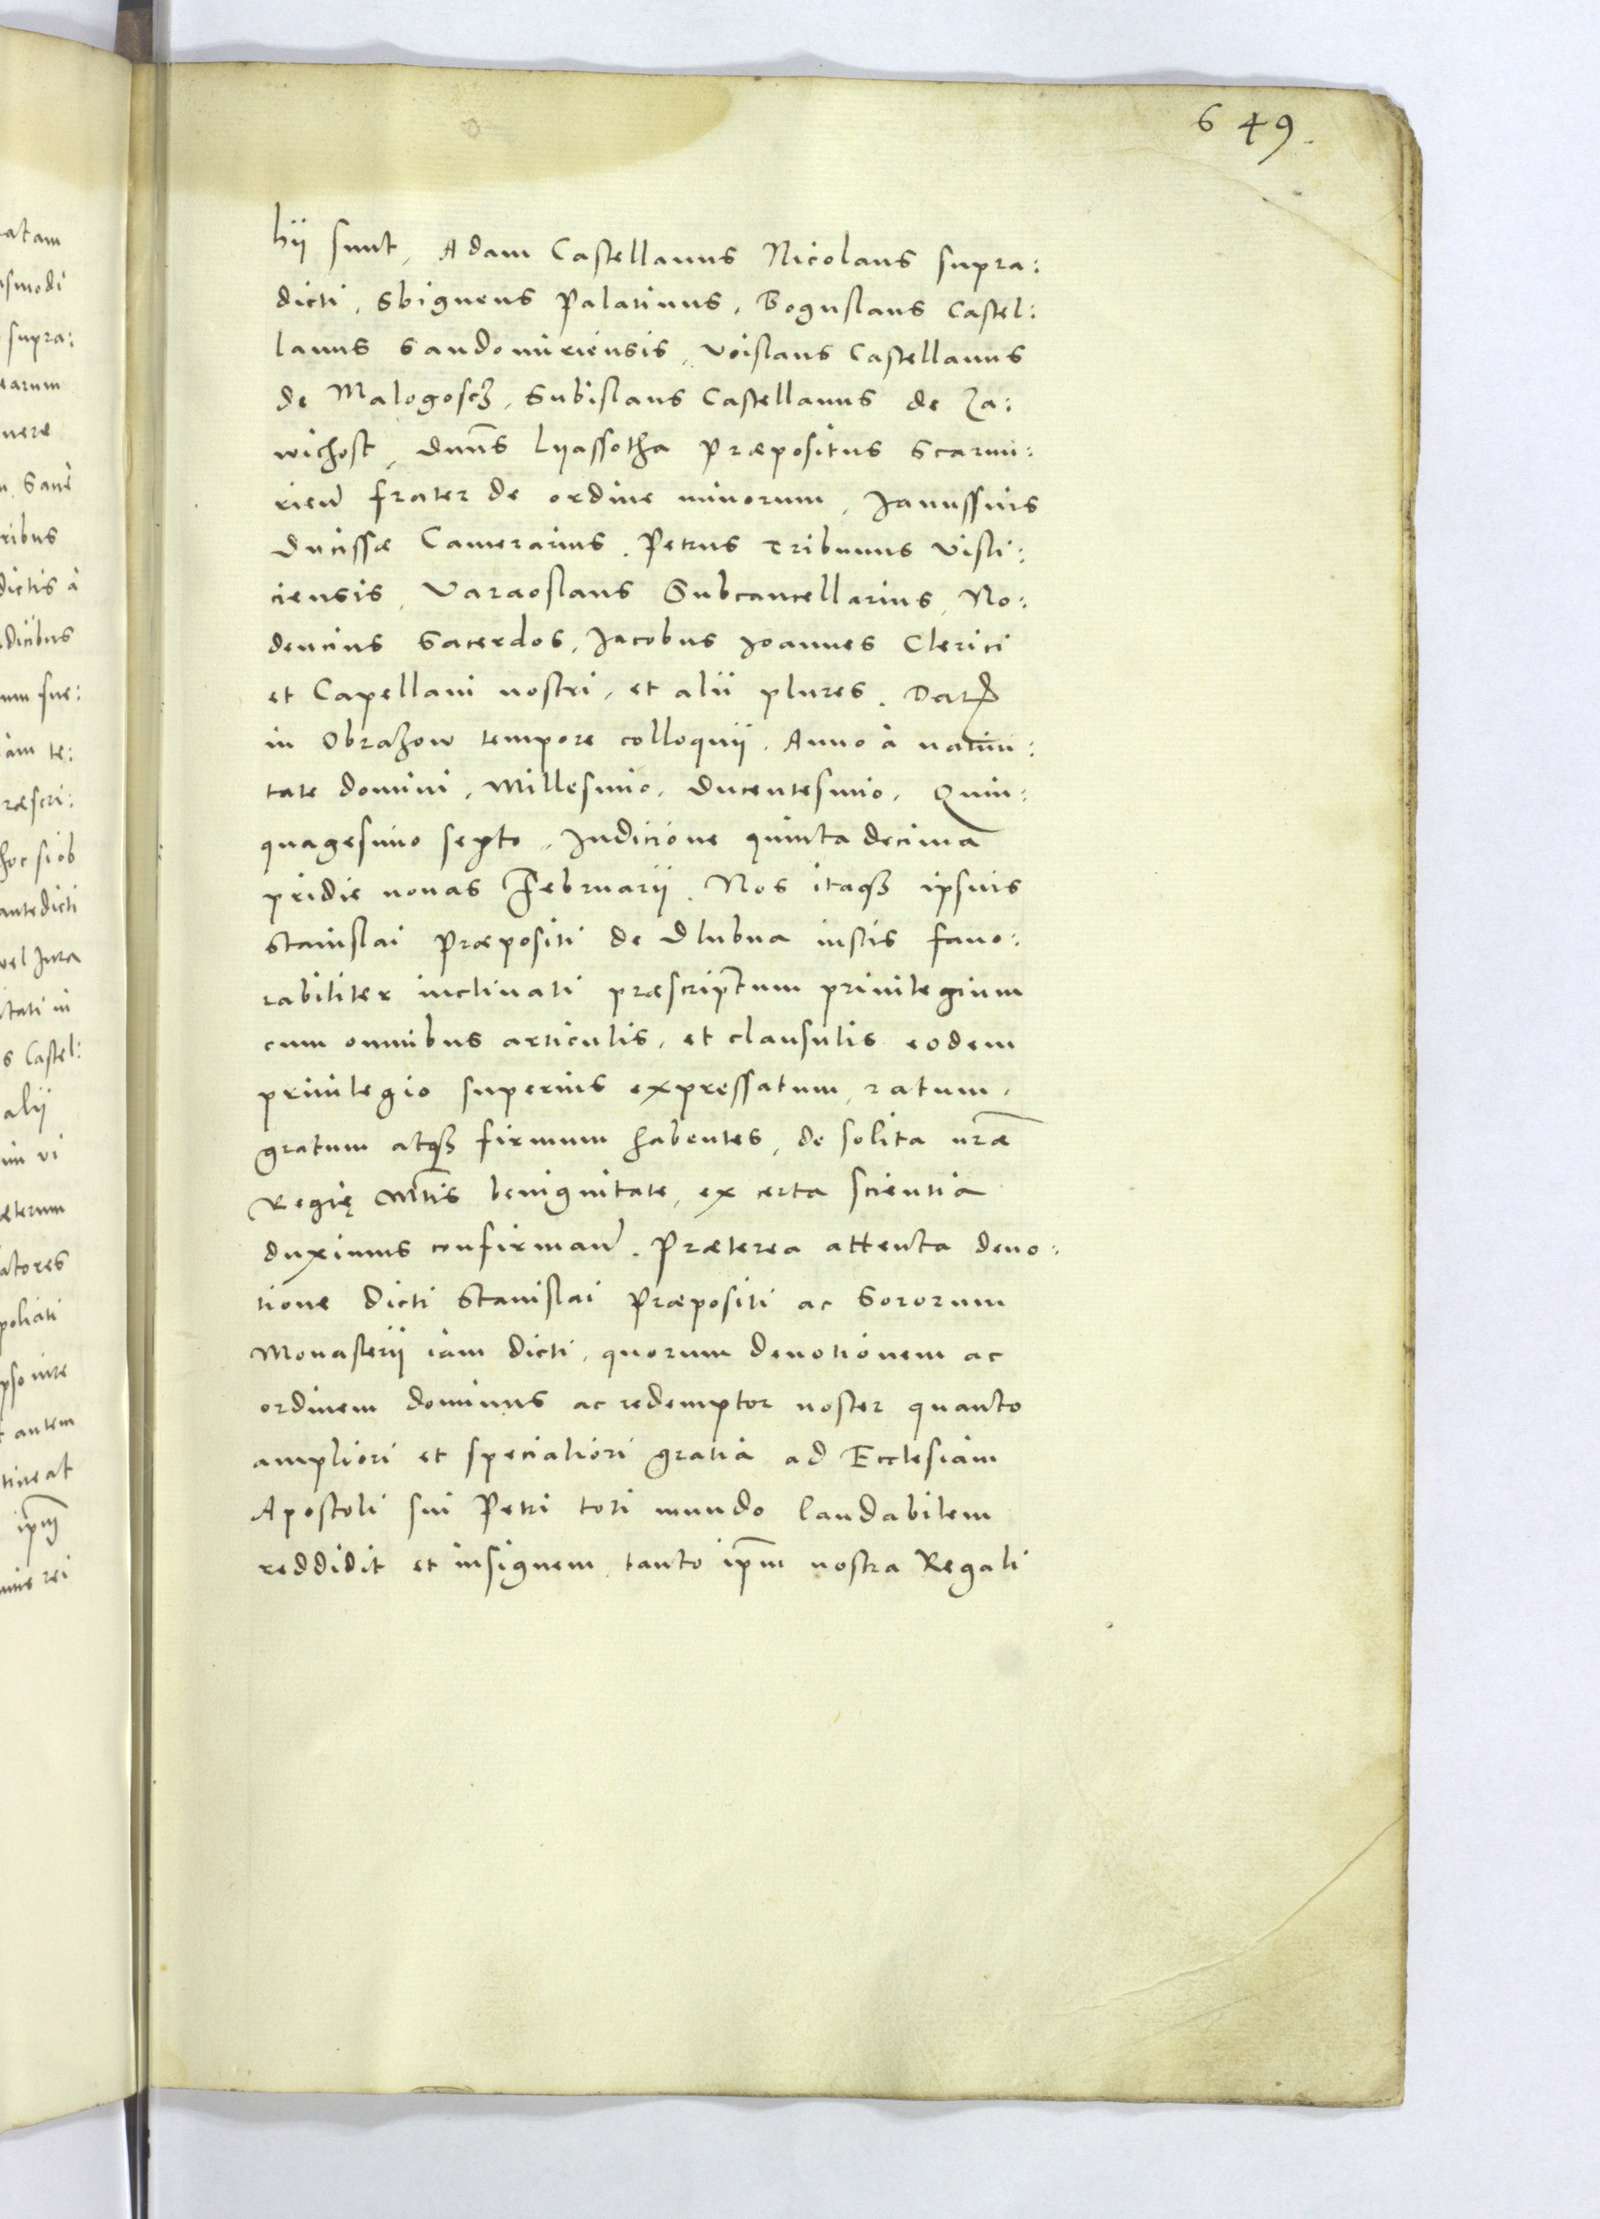 649.
hij sunt, Adam Castellanus Nicolaus supra:
dicti, Sbigneus Palatinus, Boguslaus Castel:
lanus Sandomiriensis, Voislaus Castellanus
de Malogoscz, Subislaus Castellanus de Za:
wichost, dnns Lyassotha Præpositus Scarmi:
rien frater de ordine minorum, Janussius
Ducissæ Camerarius. Petrus Tribunus Visli:
ciensis, Varaoslaus Subcancellarius, No:
dencius Sacerdos, Jacobus Joannes Clerici
et Capellani nostri, et alii plures. Dat
in Obrazow tempore colloquij. Anno à nativi:
tate domini, Millesimo, ducentesimo, Quin:
quagesimo septo, Indicione quinta decima
pridie nonas Februarij. Nos itaqȝ ipsius
Stanislai Præpositi de Dlubna iustis favo:
rabiliter inclinati præscriptum privilegium
cum omnibus articulis, et clausulis eodem
privilegio superius expressatum, ratum,
gratum atqȝ firmum habentes, de solita nræ
Regię Mtis benignitate, ex certa scientia
duximus confirman. Præterea attenta devo:
tione dicti Stanislai Præpositi ac Sororum
Monasterij iam dicti, quorum devotionem ac
ordinem dominus ac redemptor noster quanto
ampliori et specialiori gratia ad Ecclesiam
Apostoli sui Petri toti mundo laudabilem
reddidit et insignem, tanto ipm nostra Regali